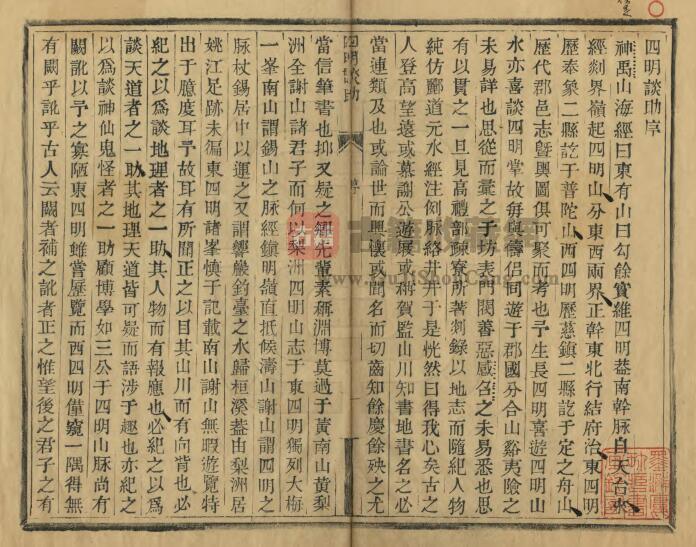 四明談助序
神禹山海經曰東有山曰勾餘實維四明葢南幹脉自天台永
經剡界嶺起四明山分東西兩界正幹東北行結府治東四明
歷奉象二縣訖于普陀山西四明歷慈鎮二縣訖于定之舟山
歷代郡邑志暨輿圖俱可聚而考也予生長四明喜遊四明山
水亦喜談四明掌故每與儔侶同遊于郡國分合山谿夷險之
未易詳也思從而彙之于坊表門閥善惡感召之未易悉也思
有以貫之一旦見高禮部疎寮所著剡錄以地志而隨紀人物
純仿酈道元水經注例脉絡井井于是恍然曰得我心矣古之
人登高望遠或慕謝公遊屐或稱賀監山川知書地書名之必
當連類及也或論世而興懷或聞名而切齒知餘慶餘殃之尤
四明談助
序
當信筆書也抑又疑之鄉先輩素稱淵博莫過于黄南山黄梨
洲全謝山諸君子而何以梨洲四明山志于東四明獨列大梅
一峯南山謂錫山之脉經鎮明嶺直抵候濤山謝山謂四明之
脉杖錫居中以運之又謂響巖釣臺之水歸桓溪葢由梨洲居
姚江足跡未徧東四明諸峯慎于記載南山謝山無暇遊覽特
出于臆度耳予故耳有所聞正之以目其山川而有向背也必
紀之以爲談地理者之一助其人物而有報應也必紀之以爲
談天道者之一助其地理天道皆可疑而語涉于趣也亦紀之
以爲談神仙鬼怪者之一助顧博學如三公于四明山脉尚有
闕訛以予之寡陋東四明雖嘗歷覽而西四明僅窺一隅得無
有闕乎訛乎古人云闕者補之訛者正之惟望後之君子之有